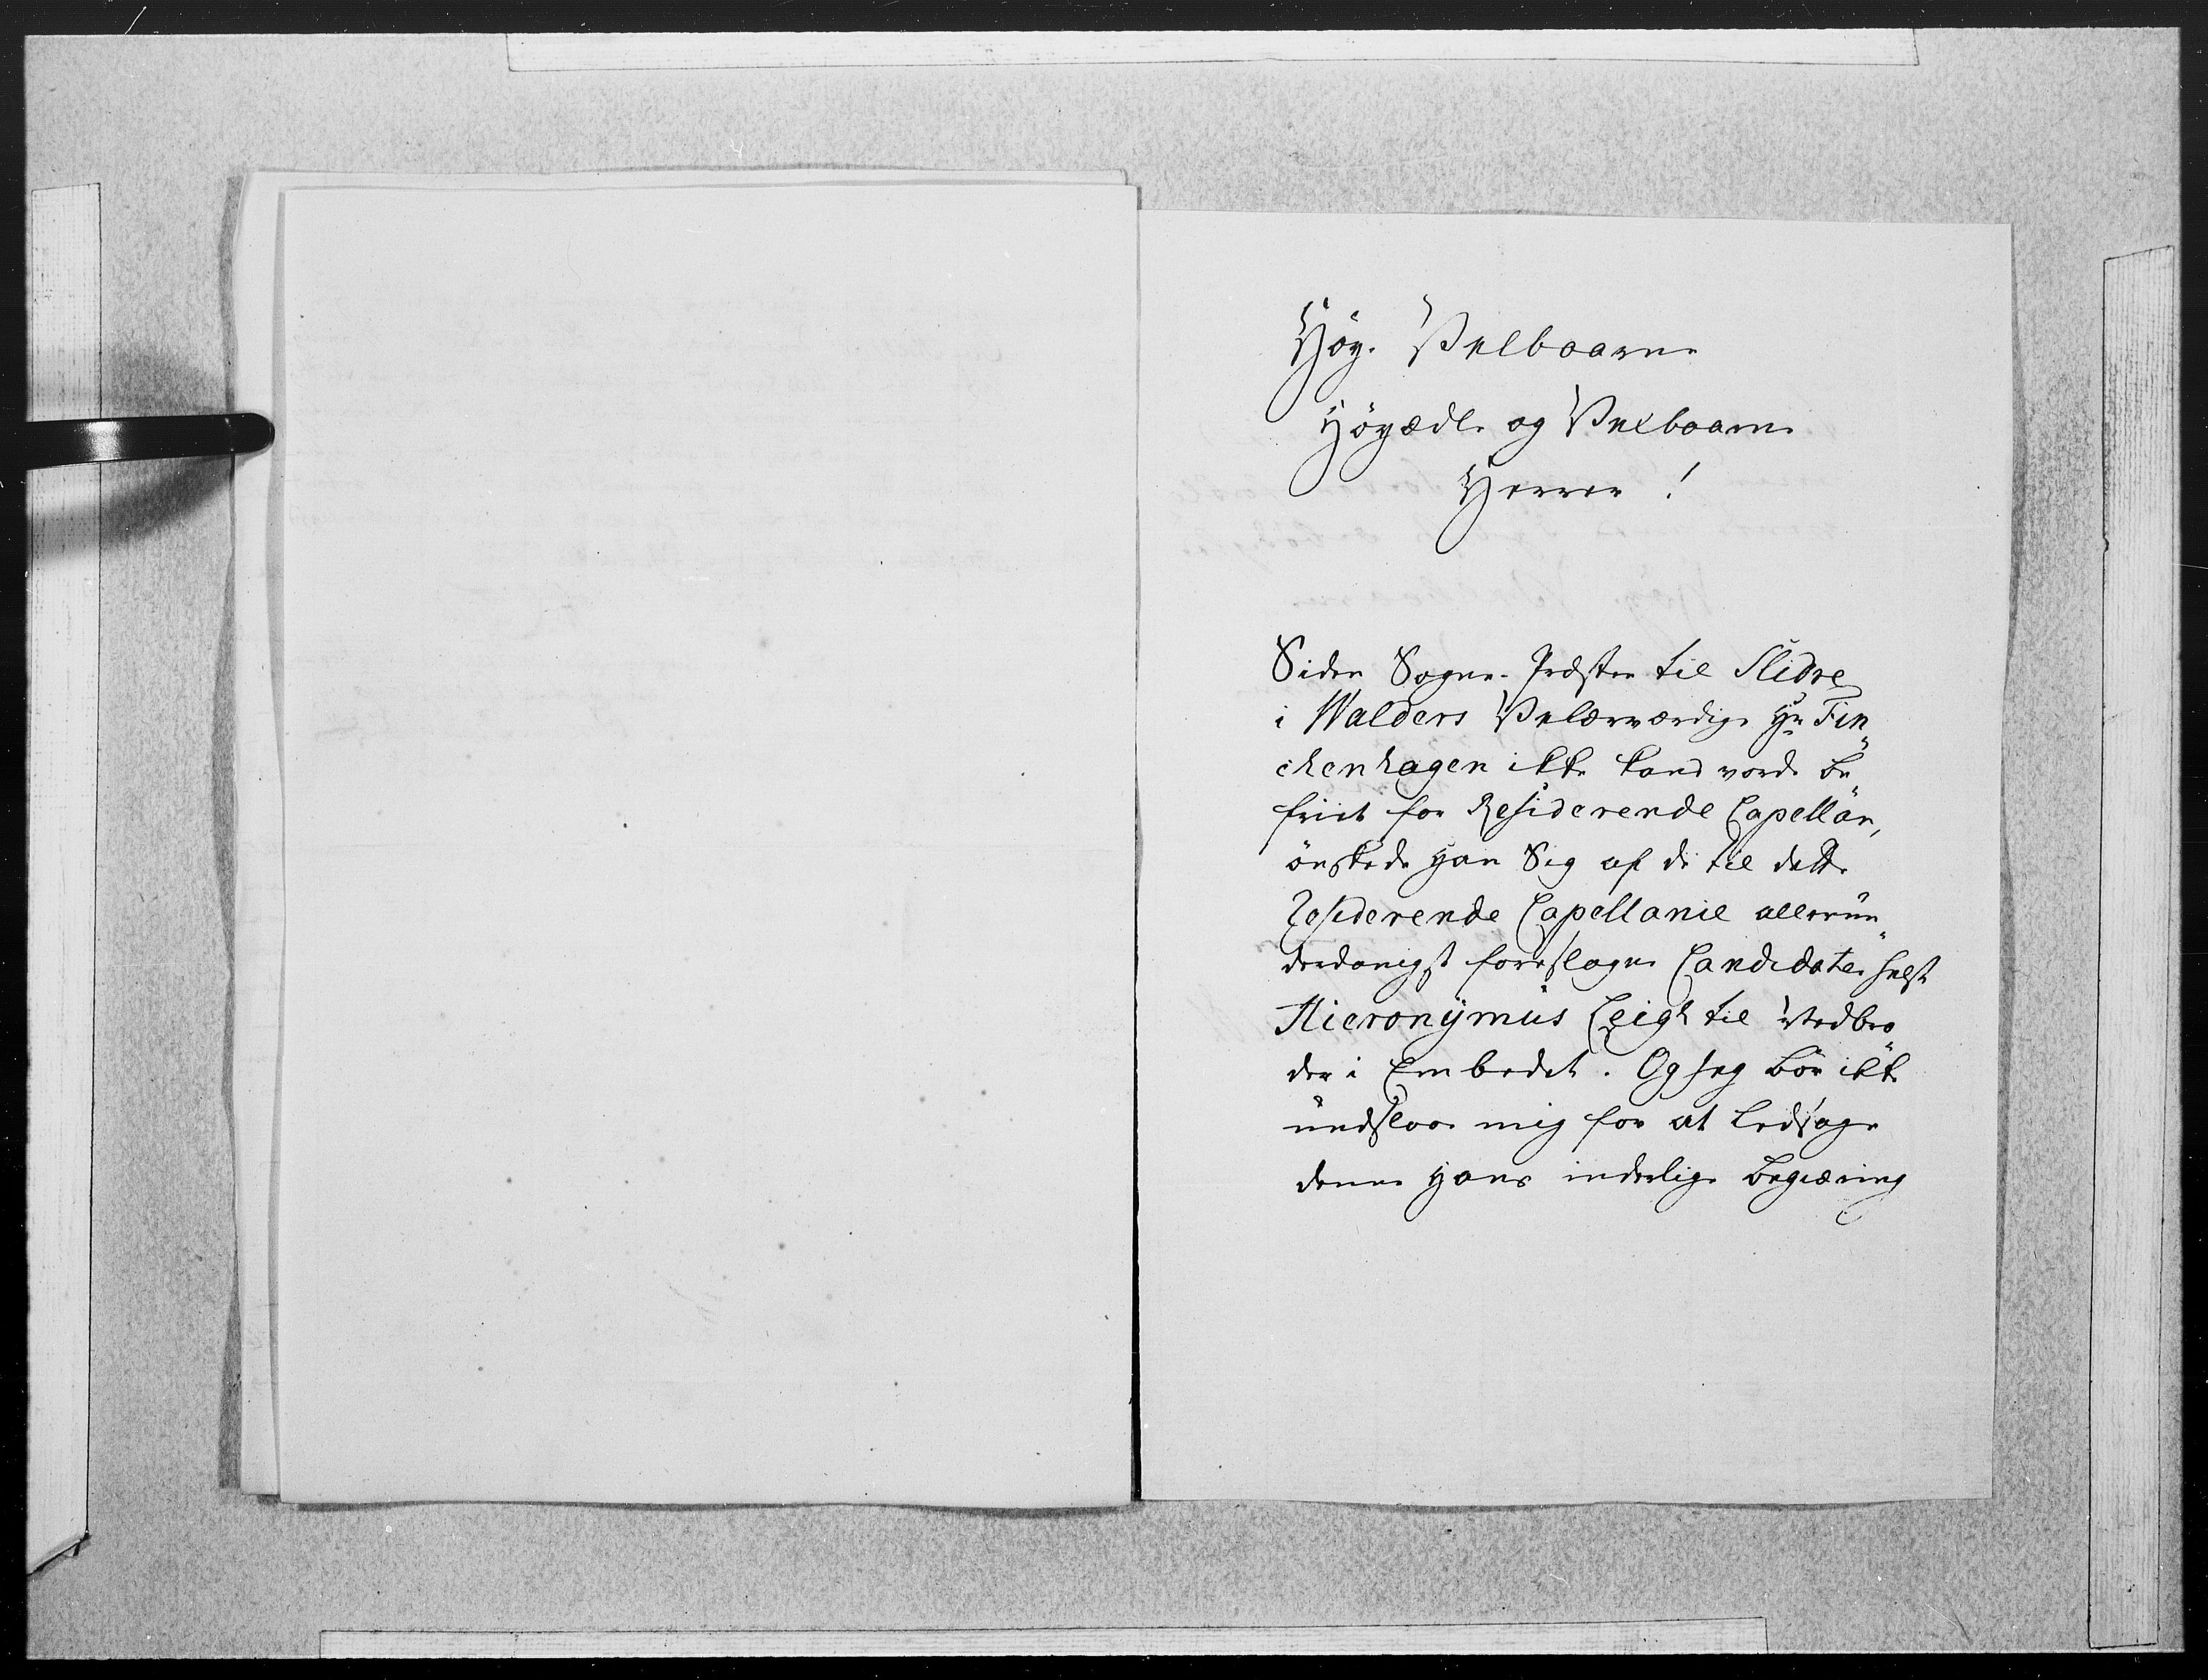 Høy- Velbaarne
Høyædle og Velbaarne
Herrer!
Siden Sogne-Præsten til Slidre
i Walders Velærværdige Hr Fin„
chenhagen ikke kand vorde be„
friet for Residerende Capellan,
ønskede Han Sig af de til dette
Residerende Capellanie allerun„
derdanigst foreslagne Candidater helst
Hieronÿmus Leigh til Medbro„
der i Embedet. Og jeg bør ikke
undslaae mig for at ledsage
denne Hans inderlige Begiæring